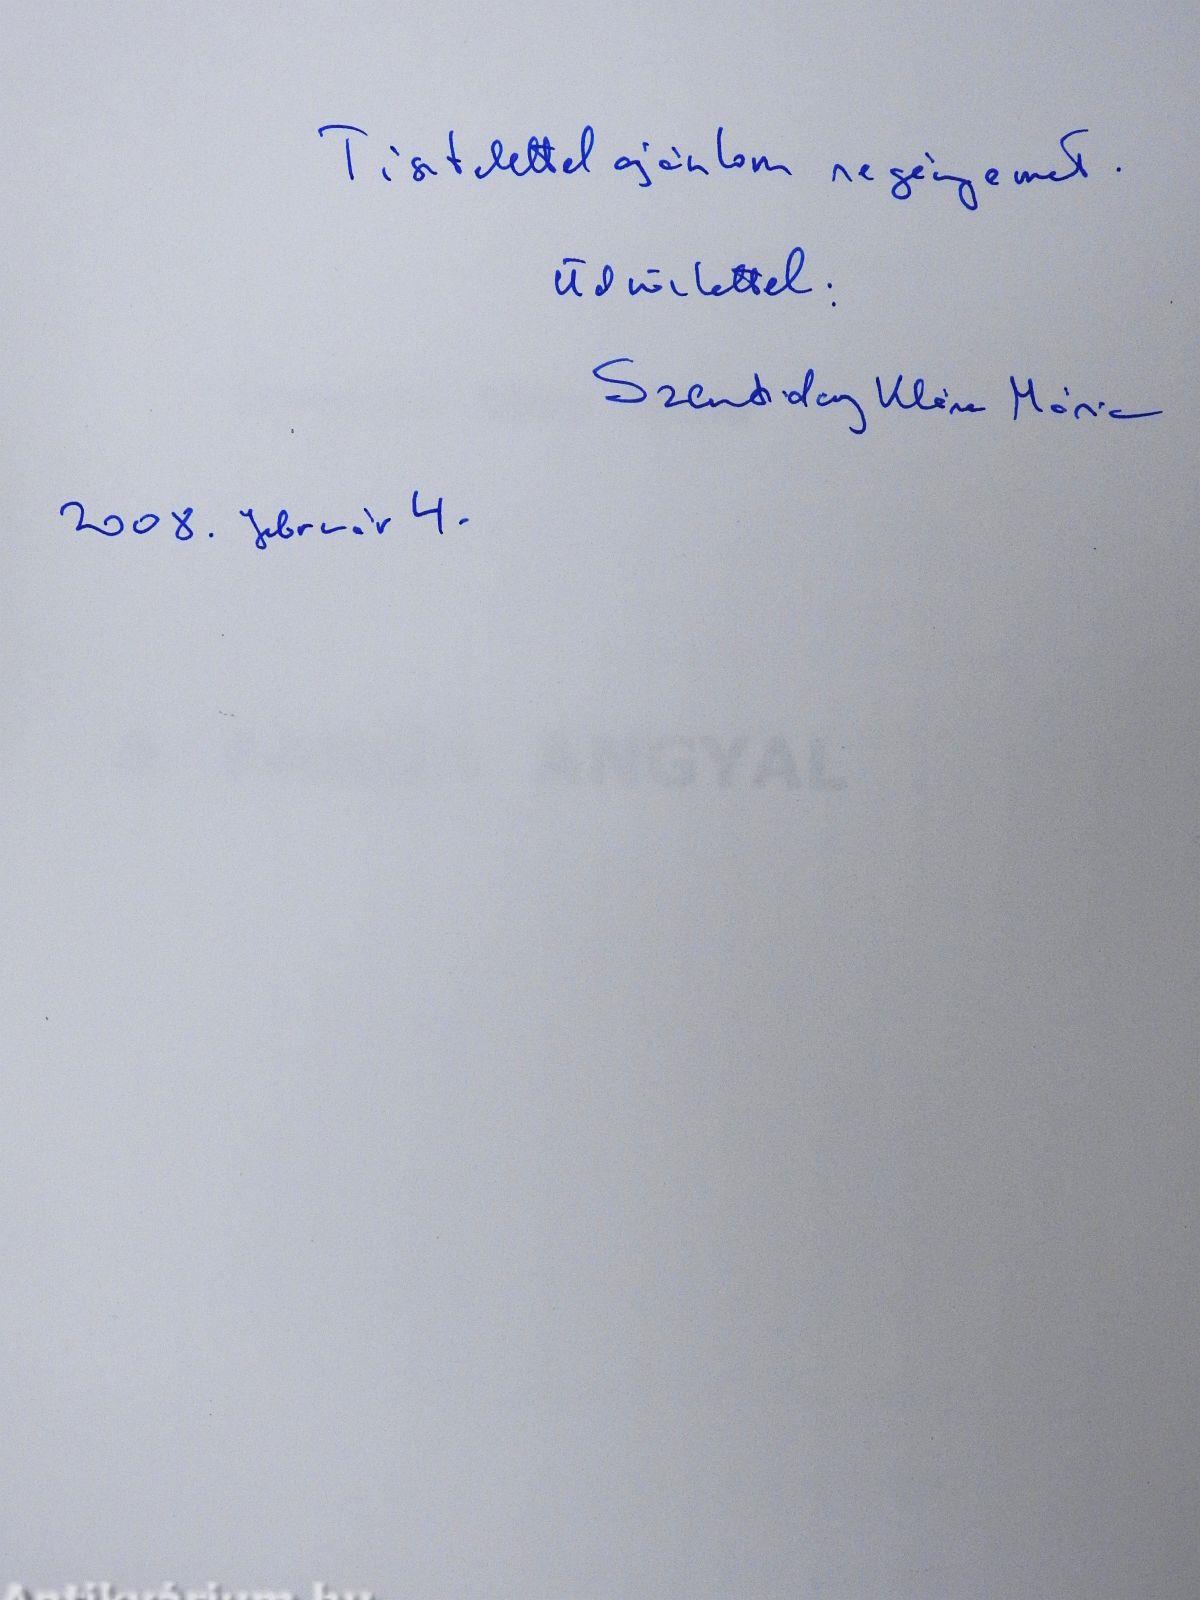 Tisztelettel ajánlom regényemet.
Üdvözlettel:
Szentiday Klára Mária
2008. február 4.
ANGYAL
Antikvárium.hu